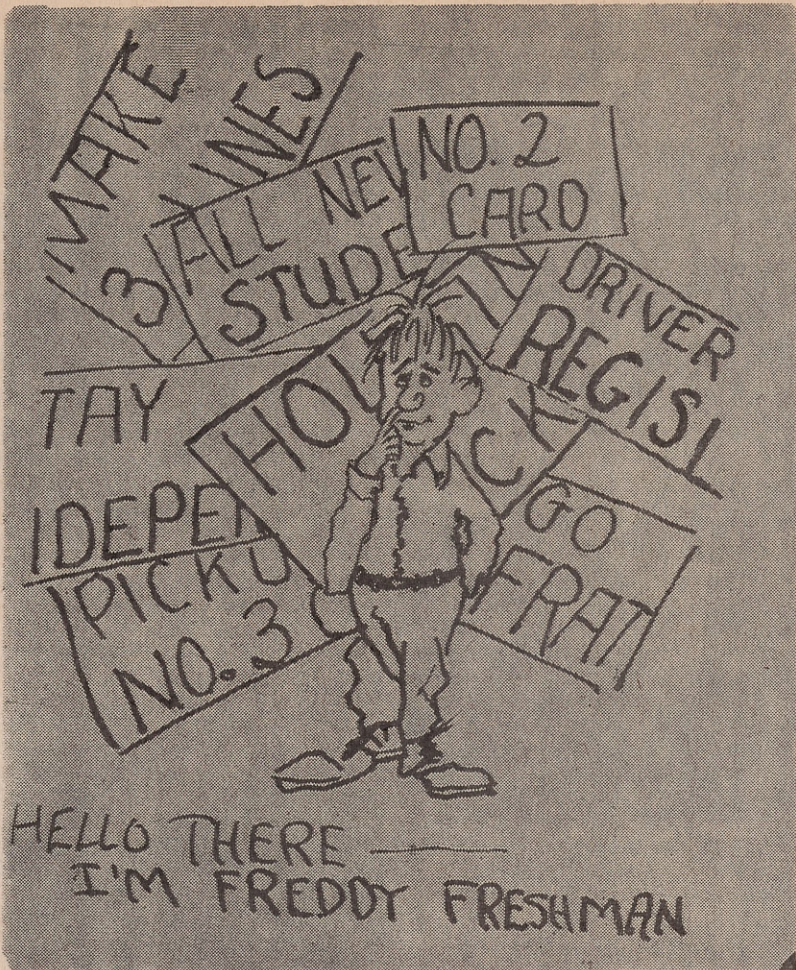 MAKE
3 LINES
ALL NEW
STUDE
NO. 2
CARD
DRIVER
REGIS
TAY
IDEPEN
HOW
CK
GO
FRAT
PICKU
NO. 3
HELLO THERE
I'M FREDDY FRESHMAN